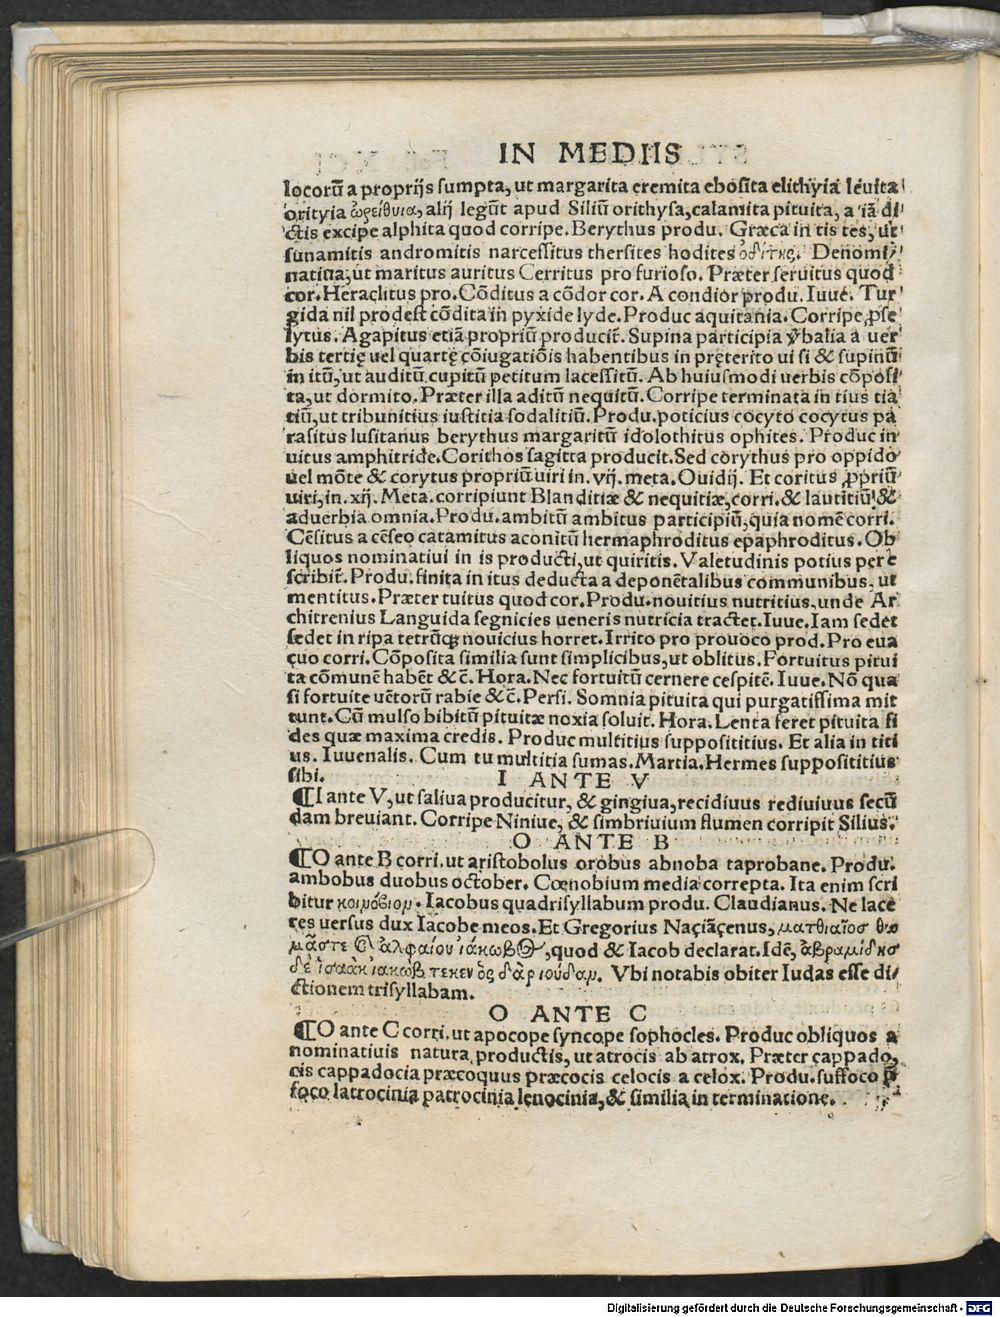 IN MEDIIS
locorū a proprijs sumpta, ut margarita eremita ebosita elithyia leuita
orityia ὠρείθυια, alij legūt apud Siliū orithysa, calamita pituita, a iā di/
ctis excipe alphita quod corripe. Berythus produ. Græca in tis tes, ut
sunamitis andromitis narcessitus thersites hodites ὁδίτης. Denomi/
natiua, ut maritus auritus Cerritus pro furioso. Præter seruitus quod
cor. Heraclitus pro. Cōditus a cōdor cor. A condior produ. Iuue. Tur
gida nil prodest cōdita in pyxide lyde. Produc aquitania. Corripe ꝓse
lytus. Agapitus etiā propriū producit̄. Supina participia ꝟbalia a uer
bis tertię uel quartę cōiugatiōis habentibus in pręterito ui si & supinū
in itū, ut auditū cupitū petitum lacessitū. Ab huiusmodi uerbis cōposi
ta, ut dormito. Præter illa aditū nequitū. Corripe terminata in tius tia
tiū, ut tribunitius iustitia sodalitiū. Produ. poticius cocyto cocytus pa
rasitus lusitanus berythus margaritū idolothitus ophites. Produc in
uitus amphitride. Corithos sagitta producit. Sed corythus pro oppido
uel mōte & corytus propriū uiri in. vij. meta. Ouidij. Et coritus ꝓpriū
uiri, in. xij. Meta. corripiunt Blanditiæ & nequitiæ, corri. & lautitiū &
aduerbia omnia. Produ. ambitū ambitus participiū, quia nomē corri.
Cēsitus a cēseo catamitus aconitū hermaphroditus epaphroditus. Ob
liquos nominatiui in is producti, ut quiritis. Valetudinis potius per e
scribit̄. Produ. finita in itus deducta a deponētalibus communibus, ut
mentitus. Præter tuitus quod cor. Produ. nouitius nutritius. unde Ar
chitrenius Languida segnicies ueneris nutricia tractet. Iuue. Iam sedet
sedet in ripa tetrūq; nouicius horret. Irrito pro prouoco prod. Pro eua
cuo corri. Cōposita similia sunt simplicibus, ut oblitus. Fortuitus pitui
ta cōmunē habēt &c̄. Hora. Nec fortuitū cernere cespitē. Iuue. Nō qua
si fortuite uētorū rabie &c̄. Persi. Somnia pituita qui purgatissima mit
tunt. Cū mulso bibitū pituitæ noxia soluit. Hora. Lenta feret pituita fi
des quæ maxima credis. Produc multitius supposititius. Et alia in titi
us. Iuuenalis. Cum tu multitia sumas. Martia. Hermes supposititius
sibi.
I ANTE V
¶I ante V, ut saliua producitur, & gingiua, recidiuus rediuiuus secū
dam breuiant. Corripe Niniue, & simbriuium flumen corripit Silius.
O ANTE B
¶O ante B corri. ut aristobolus orobus abnoba taprobane. Produ.
ambobus duobus october. Cœnobium media correpta. Ita enim scri
bitur κοινόβιον. Iacobus quadrisyllabum produ. Claudianus. Ne lace
res uersus dux Iacobe meos. Et Gregorius Naçiāçenus, ματθιαῖοσ θω
quod & Iacob declarat. Idē,
Vbi notabis obiter Iudas esse di/
ctionem trisyllabam.
O ANTE C
¶O ante C corri. ut apocope syncope sophocles. Produc obliquos a
nominatiuis natura productis, ut atrocis ab atrox. Præter cappado,
cis cappadocia præcoquus præcocis celocis a celox. Produ. suffoco p̄
foco latrocinia patrocinia lenocinia, & similia in terminatione.
Digitalisierung gefördert durch die Deutsche Forschungsgemeinschaft - DFG